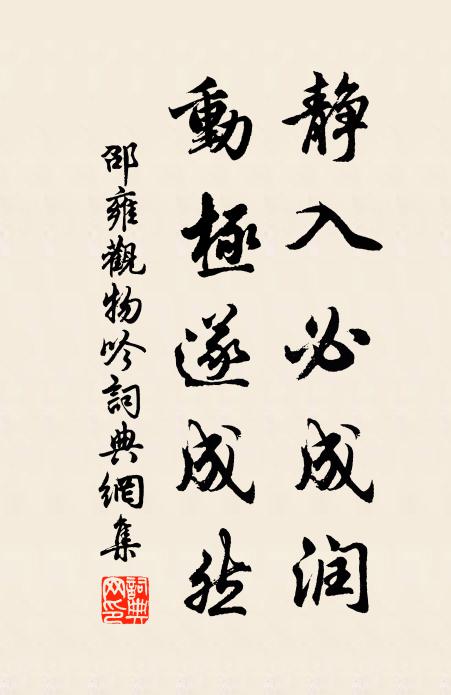 静入必成润
動極遂成然
邵雍觀物吟詞典網集
詞典网印